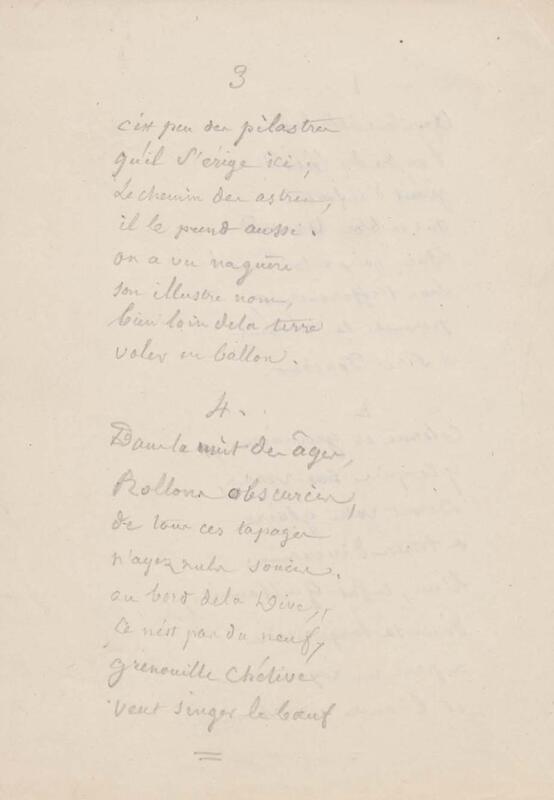 3
c'est peu des pilastres
qu'il s'érige ici,
Le chemin des astres,
il le prend aussi.
on a vu naguère
son illustre nom,
bien loin de la terre
voler en ballon.
4.
Dans la nuit des âges,
Rollons obscurcis,
de tous ces tapages
n'ayez nuls soucis.
au bord de la Dive,
Ce n'est pas du neuf,
grenouille chétive
veut singer le bœuf